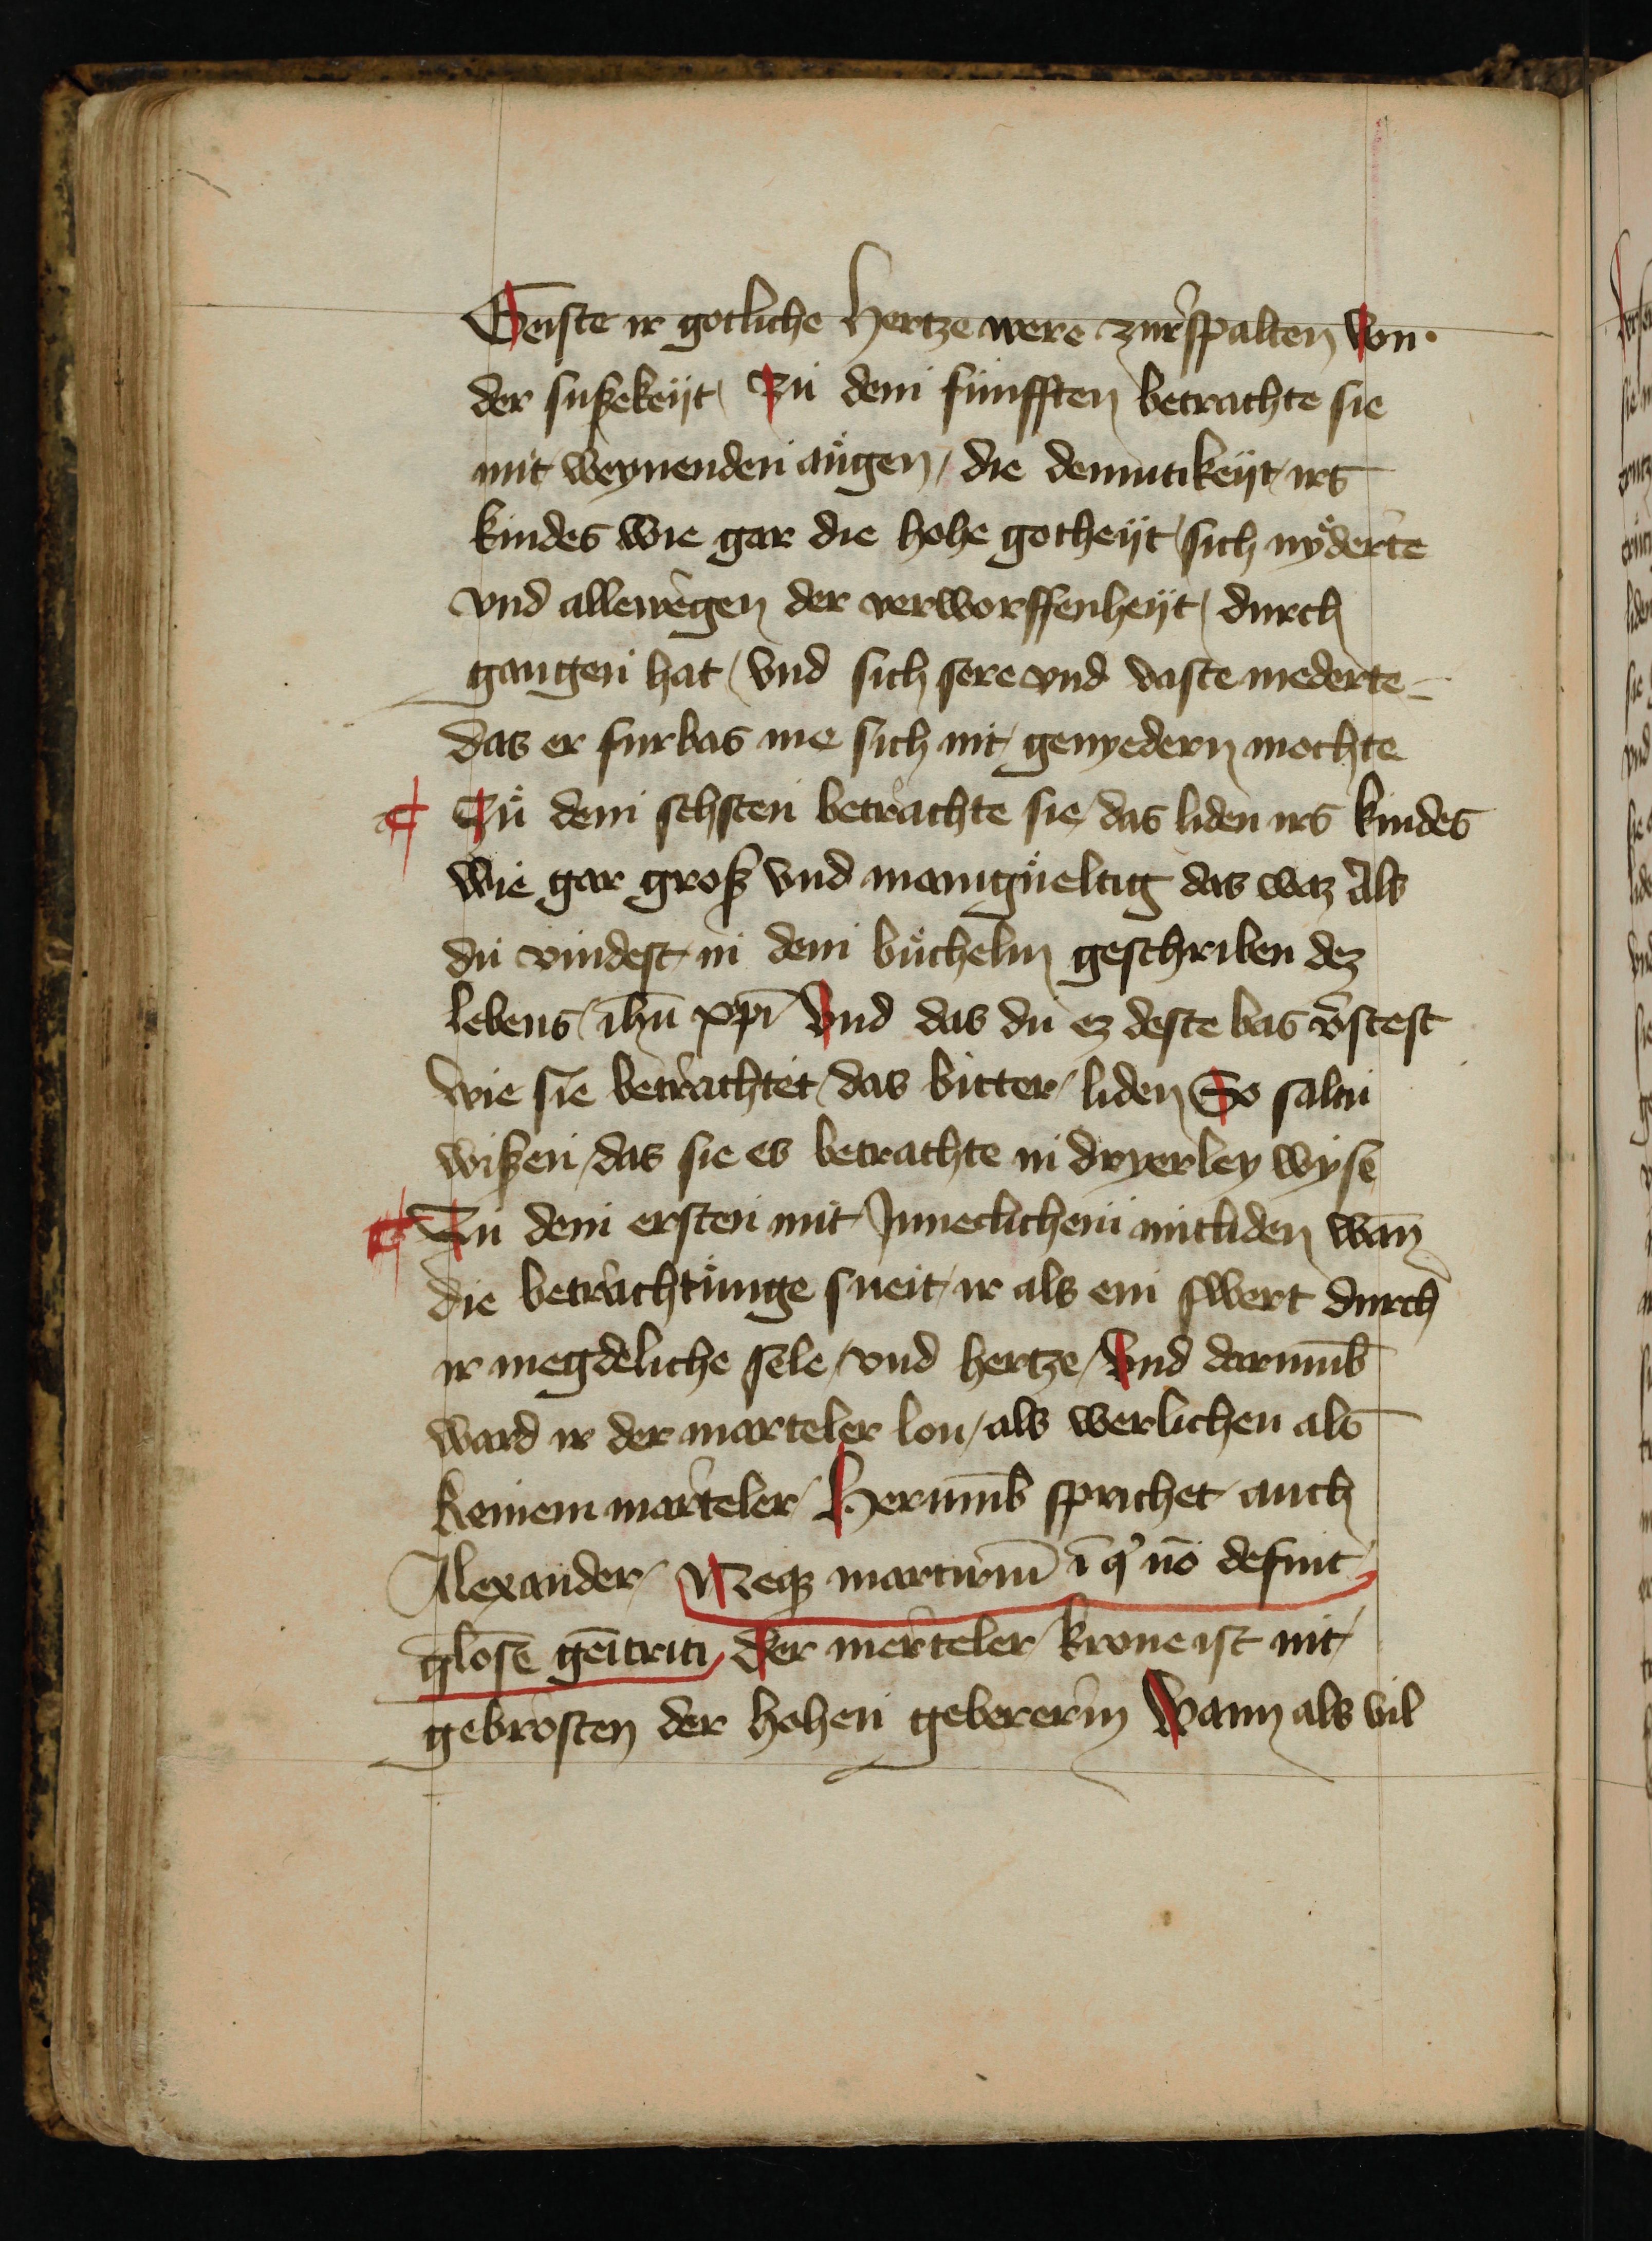 Geiste ir gotliche hertze were zurspalten von·
der sußekeijt Zu dem fünfften betrachte sie
mit weynenden augen / die demutikeijt irs
kindes wie gar die hohe gotheijt sich nyderte
vnd allewegen der verworffenheijt / durch
gangen hat / vnd sich sere vnd vaste niederte
das er furbas me sich nit genyedern mochte
Zu dem sehsten betrachte sie / das liden irs kindes
wie gar groß vnd manigueltig das waz Als
du vindest in dem büchelin geschriben dez
lebens ihū xp̄i Vnd das du ez deste bas v̄stest
wie sie betrachtet / das bitter liden So saltu
wißen / das sie es betrachte in dryerley wyse
Zu dem ersten mit Inneclichem mitliden wan̄
die betrachtunge sneit ir als ein swert durch
ir megdeliche sele / vnd hertze / Vnd darum̄b
ward ir der marteler lon / als werlichen als
keinem marteler / Herum̄b sprichet auch
Alexander / Neqꝫ martiriū ī q° nō definit
glose gēitrici / Der merteler krone ist nit
gebrosten der hohen gebererin Wann als vil